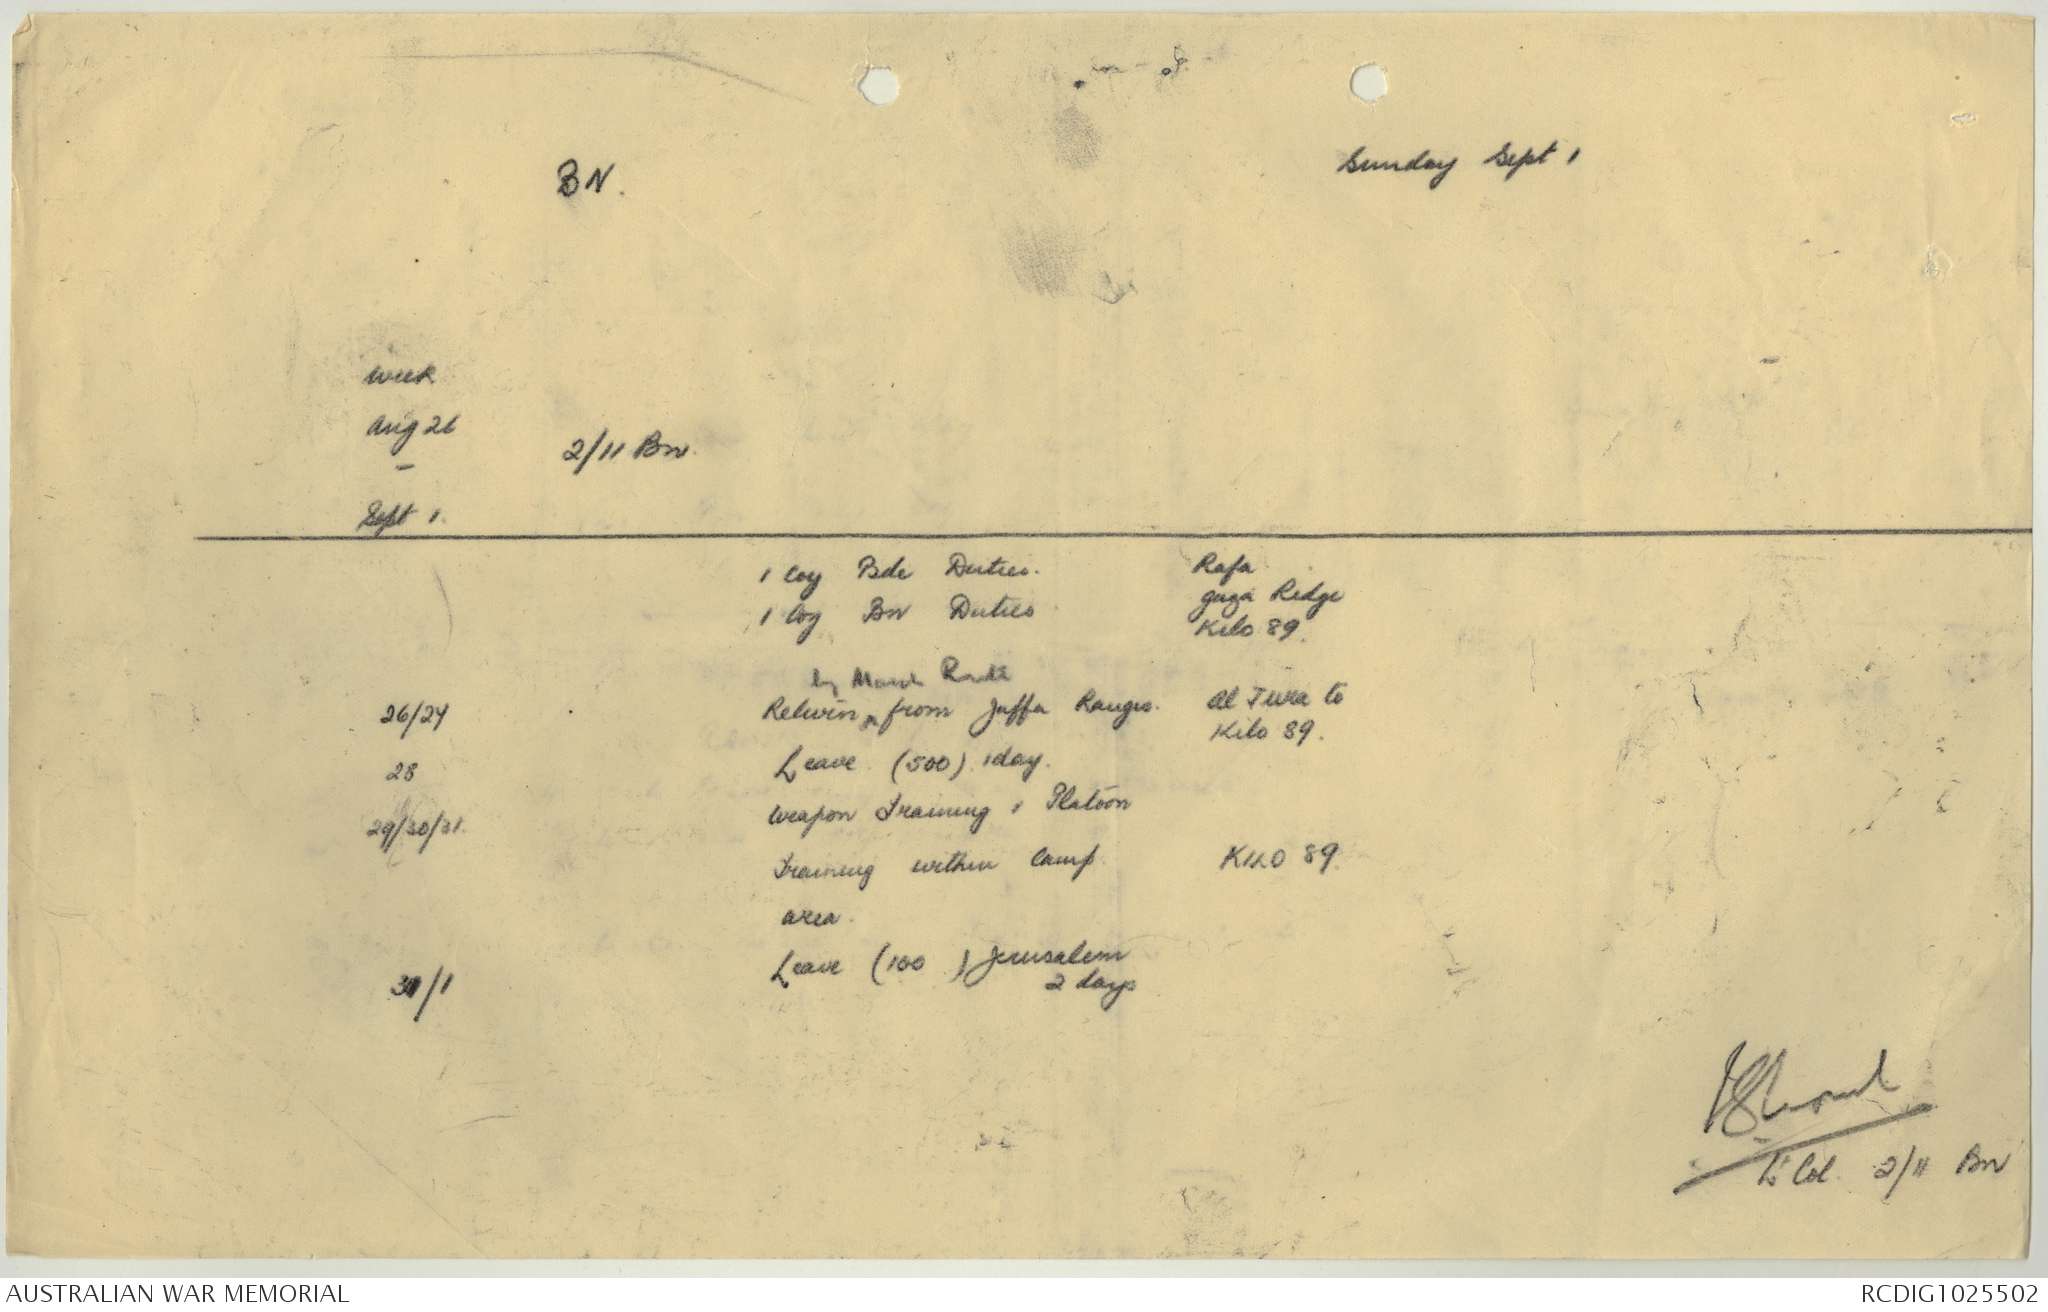 BN.
Sunday Sept 1
Week
Aug 26
-
Sept 1.
2/11 Bn.
1 Coy Bde Duties.
Rafa
1 Coy Bn Duties
Gaza Ridge
Kilo 89.
by March Route
26/27
Return ^ from Jaffa Ranges.
Al Jura to
Kilo 89.
28
Leave (500) 1 day.
29/30/31.
Weapon Training, Platoon
Training within Camp
KILO 89.
area.
31/1
Leave (100) Jerusalem
2 days
Lt Col. 2/11 Bn
AUSTRALIAN WAR MEMORIAL
RCDIG1025502